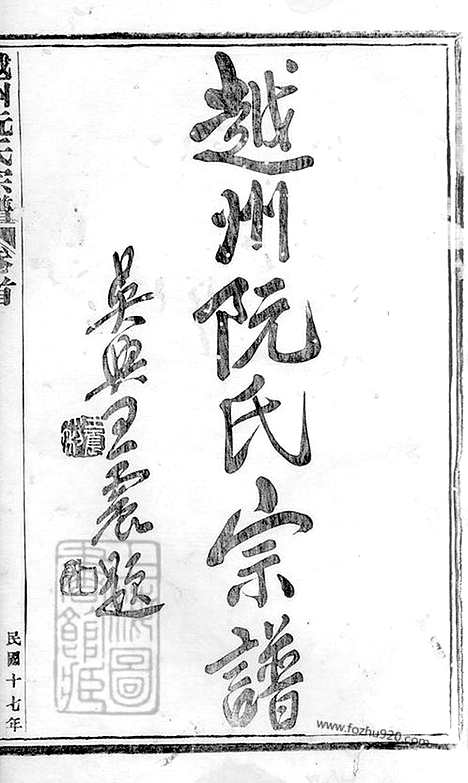 越州阮氏宗譜
吳興王震題
越州阮氏宗譜 卷首
民國十七年
www.fozhu920.com